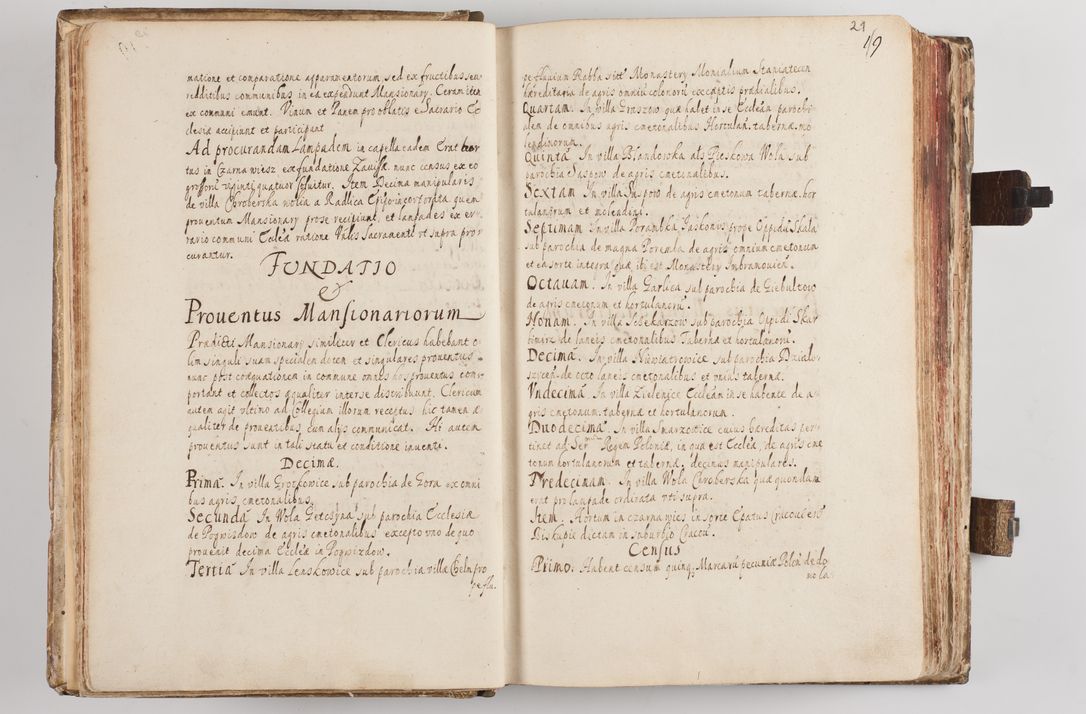 natione et comparatione apparamentorum sed ex fructibus seu
redditibus communibus in ea expendunt Mansionary. Ceram item
ex communi emunt. Vinum et Panem pro oblatis e Sacrario Ec
clesiæ accipiunt et participant
Ad procurandam Lampadem in capella eadem Erat hor
tus in Czarna wiesz ex fundatione Zavissæ. nunc census ex eo
grossoru viginti quatuor soluitur. Item Decima manipularis
de villa Chroberska wolia a Radlica Episcopo incorporata quem
prouentum Mansionary pro se recipiunt, et lampades ex er=
rario communi Ecclæ ratione Vnbls Sacramenti vt supra pro=
curantur.
FUNDATIO
&
Prouentus Mansionariorum
Prædicti Mansionary similiter et Clericus habebant o=
lim singuli suam specialem dotem et singulares prouentus
nunc post coæquationem in commune omnes hos prouentus com=
portant et collectos æqualiter inter se distribuunt. Clericum
autem agit vltimo ad Collegium illorum receptus hic tamen æ
qualiter de prouentibus, cum alys communicat. Hi autem
prouentus sunt in tali statu et conditione inuenti.
Decimæ.
Prima. In villa Grotkowice sub parochia de Gora ex omni
bus agris cmetonalibus.
Secunda In Wola sub parochia Ecclesiæ
de Pogwizdow de agris cmetonalibus excepto vno de quo
prouenit decima Ecclæ in Pogwizdow.
Tertia In villa Lenskowice sub parochia villæ Chelm pro
pe flu.
21
49
pe fluuium Rabba sitt Monastery Monialium Staniatecen
hæreditaria de agris omniu colonoru exceptis prædialibus.
Quartam. In villa quæ habet in se Ecclēam parochi=
alem de omnibus agris cmetonalibus Hortulan. taberna. mo
lendinorum.
Quinta In villa als Pieskowa Wola sub
parochia Saspow de agris cmetonalibus.
Sextam In villa Suspow de agris cmetonum tabernæ. hor
tulanorum et molendini.
Septimam In villa Porambka prope Oppidū Skala
sub parochia de magna Poremba de agris omnium cmetonum
et ea sorte integra quæ ibi est Monastery Imbramouien.
Octauam. In villa Garlica sub parochia de Giebultow
de agris cmetonum et hortulanoru.
Nonam. In villa sub parochia Oppidi Skar
bimirz de laneis cmetonalibus Taberna et hortulanoru.
Decima. In villa sub parochia Dzialo=
szycen de octo laneis cmetonalibus et vnius tabernæ.
Vndecima. In villa Zielenice Ecclēam in se habente de a=
gris cmetonum tabernæ et hortulanorum.
Duodecima. In villa Smarzowice cuius hæreditas per=
tinet ad Ser Regem Poloniæ, in qua est Ecclēa, de agris cme
tonum hortulanorum et taberna, decimas manipulares.
Tredecimam. In villa Wola Chroberska quæ quondam
erat pro lampade ordinata vti supra.
Item. Hortum in czarna wies in sorte Epatus Cracouien
Biskupie dictam in suburbio Cracou.
Census
Primo. Habent censum quinq; Marcaru pecuniæ Polon de do
mo la.